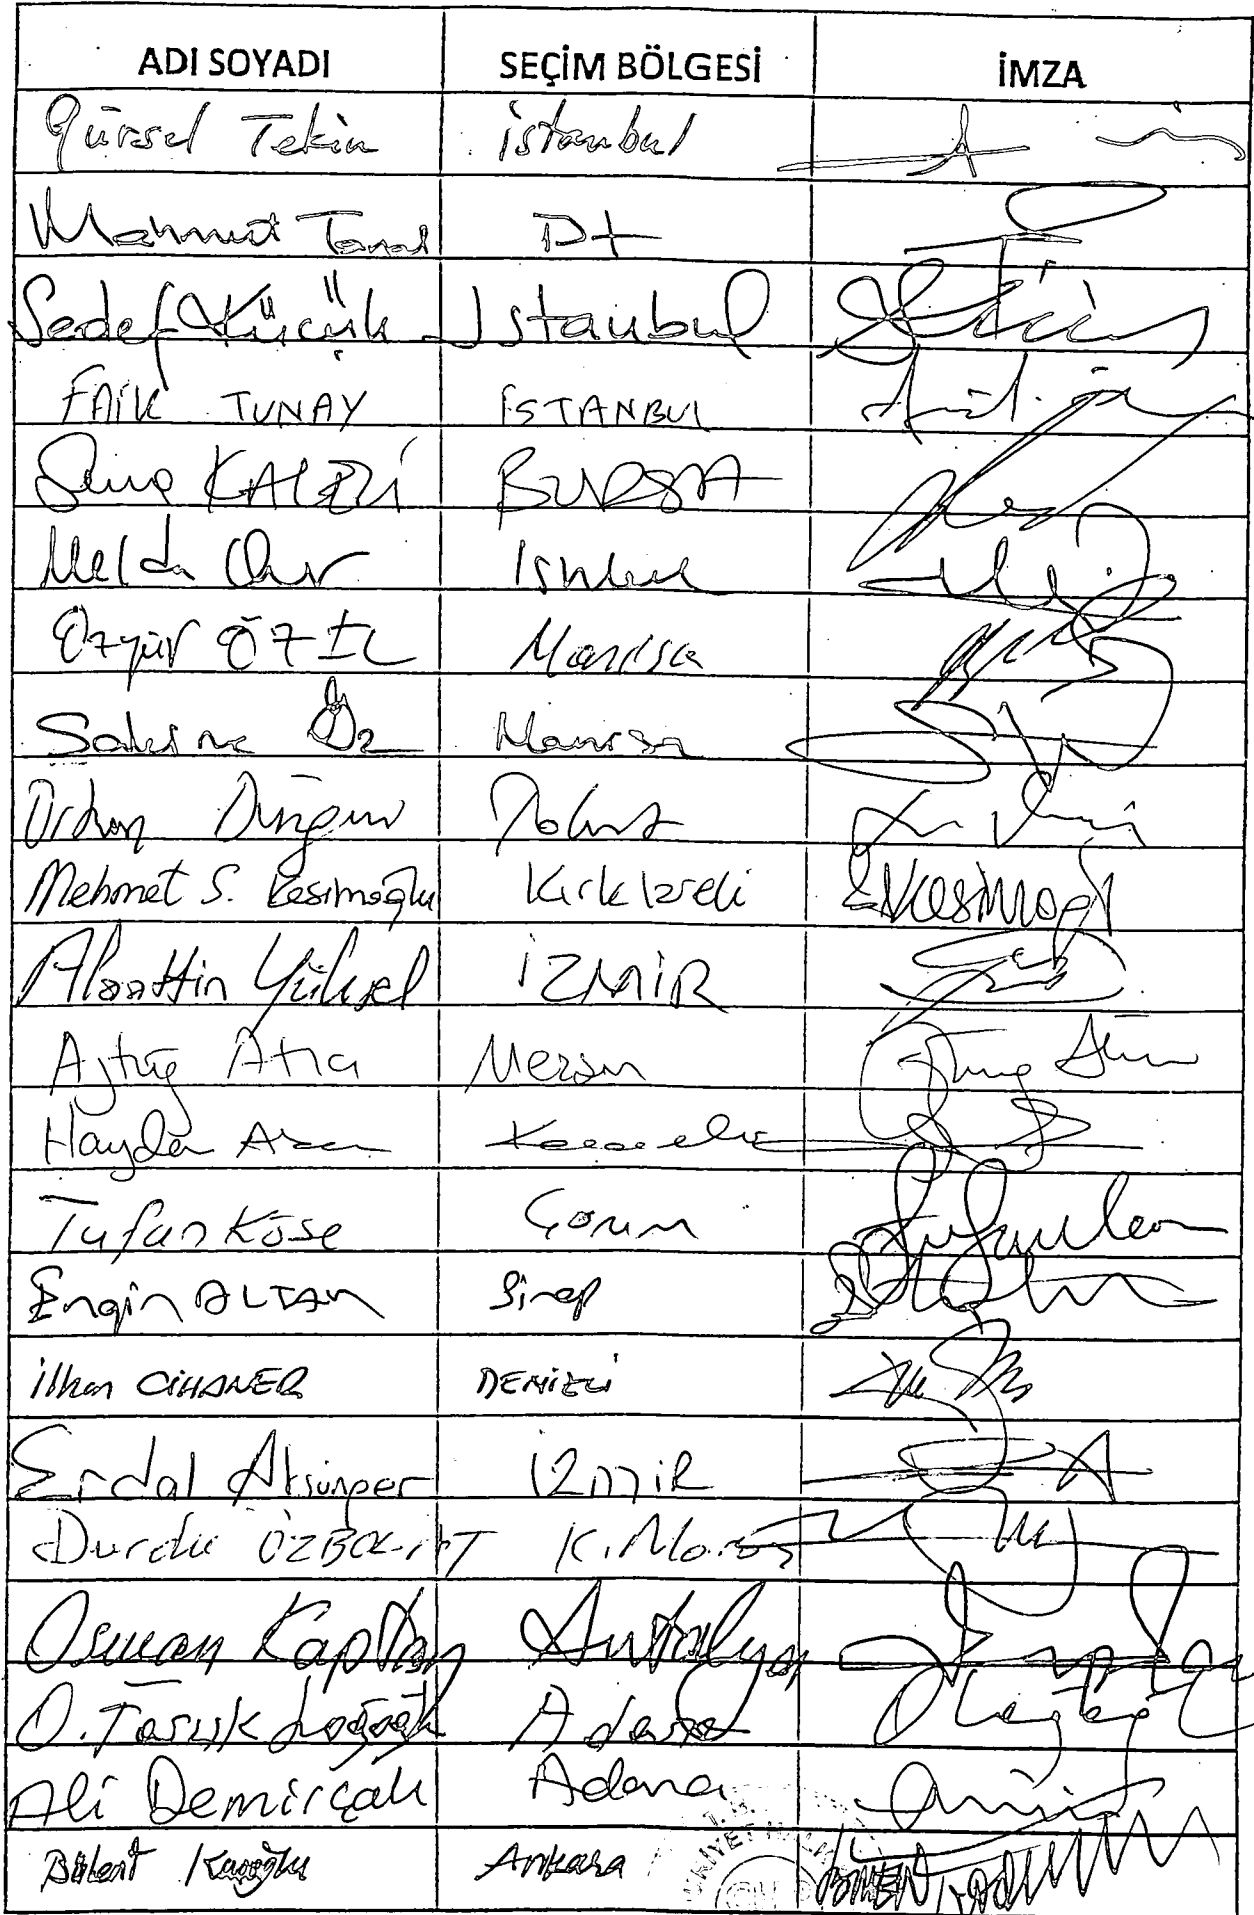 ADI SOYADI SEÇİM BÖLGESİ İMZA
Gürsel Tekin İstanbul
Mahmut Tanal
Sedef Küçük Istanbul
FAİK TUNAY İSTANBUL
Sena KALELİ BURSA
Melda Onur
Özgür ÖZEL Manisa
Sakine Öz Manisa
Orhan Düzgün Tokat
Mehmet S. Kesimoğlu Kırklareli Kesimoğl
Alaattin Yüksel İZMİR
Aytuğ Atıcı Mersin
Haydar Akar Kocaeli
Tufan Köse Çorum
Engin ALTAY Sinop
İlhan CİHANER DENİZLİ
Erdal Aksünger İZMİR
Durdu ÖZBOLAT K.Maraş
Osman Kaptan Antalya
O. Faruk Loğoğlu Adana
Ali Demirçalı Adana
Bülent Kuşoğlu Ankara